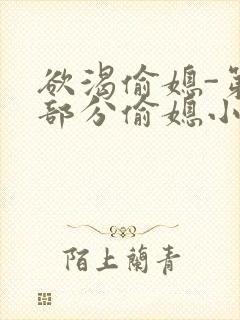 欲渴偷媳-第
部分偷媳小
陌上蘭青